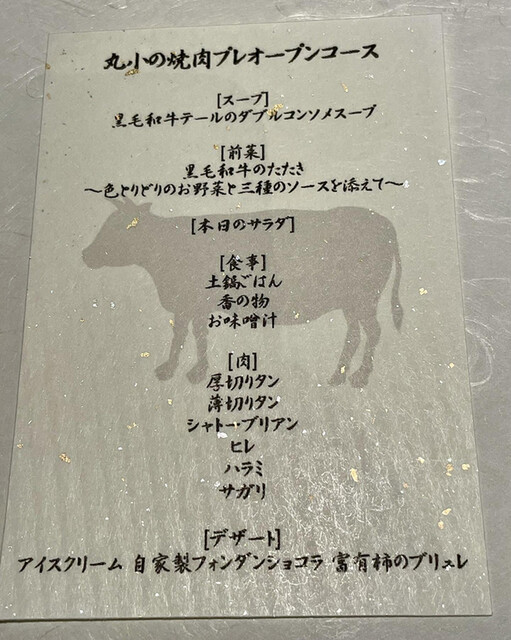 丸小の焼肉プレオープンコース
[スープ]
黒毛和牛テールのダブルコンソメスープ
[前菜]
黒毛和牛のたたき
〜色とりどりのお野菜と三種のソースを添えて〜
[本日のサラダ]
[食事]
土鍋ごはん
香の物
お味噌汁
[肉]
厚切りタン
薄切りタン
シャトー・ブリアン
ヒレ
ハラミ
サガリ
[デザート]
アイスクリーム 自家製フォンダンショコラ 富有柿のブリュレ